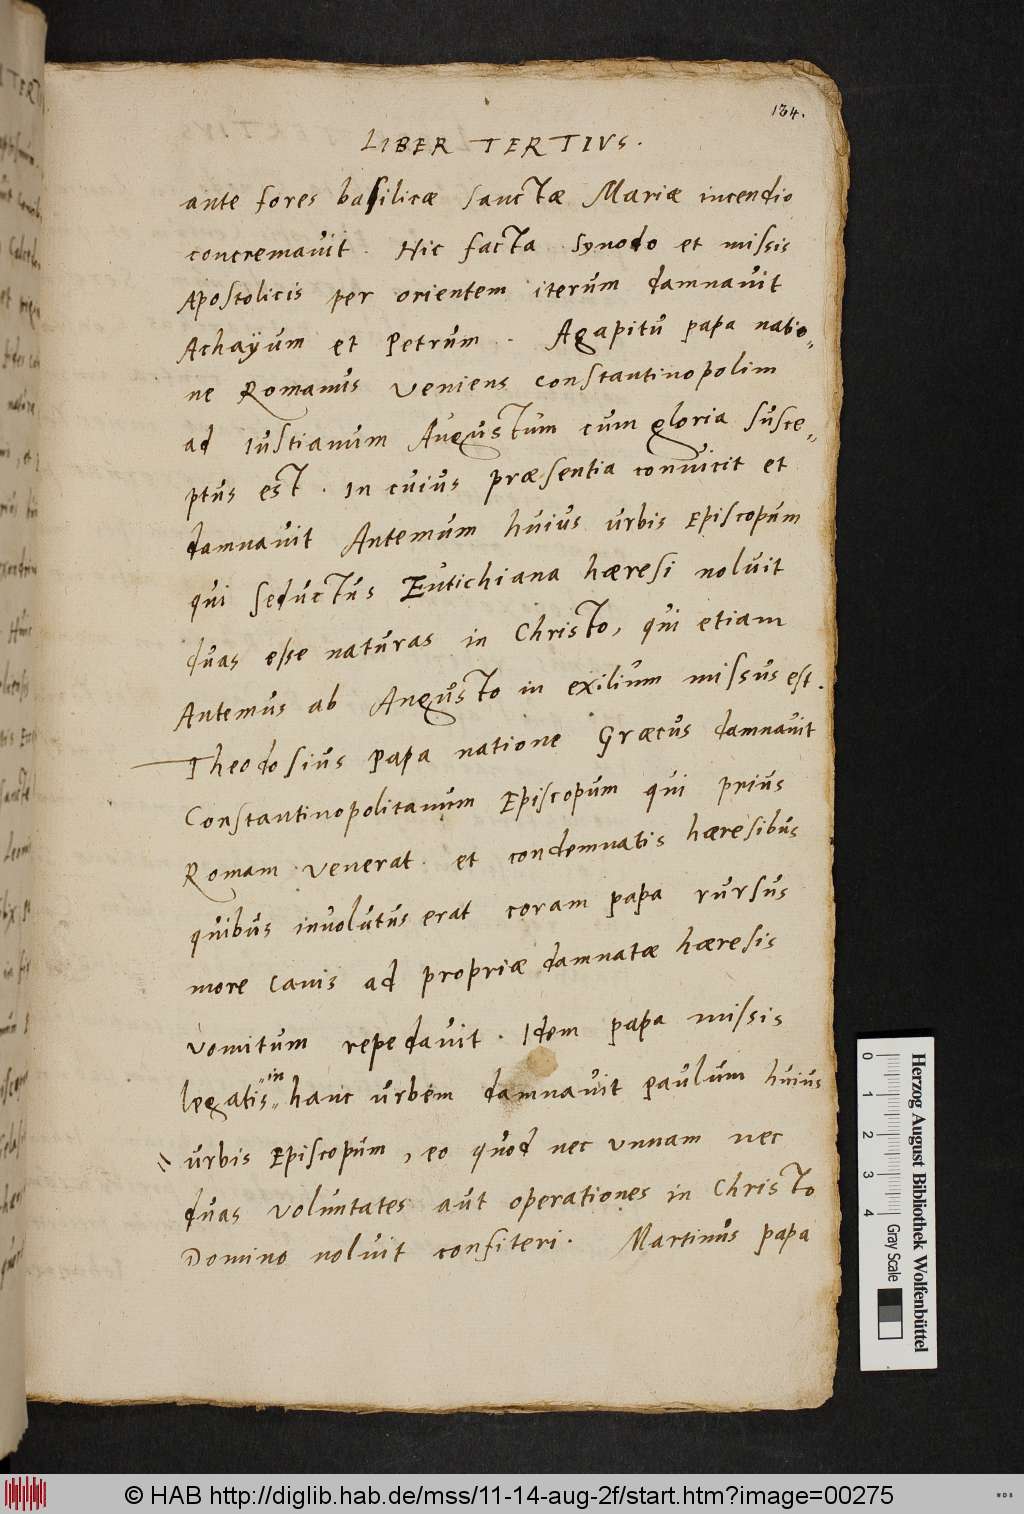 134.
LIBER TERTIVS.
ante fores basilicæ sanctæ Mariæ incendio
concremauit. Hic facta synodo et missis
Apostolicis per orientem iterum damnauit
Achayum et Petrum. Agapitū papa natio„
ne Romanus veniens constantinopolim
ad Iustianum Augustum cum gloria susce„
ptus est. In cuius præsentia conuicit et
damnauit Antemum huius urbis Episcopum
qui seductus Eutichiana hæresi noluit
duas esse naturas in Christo, qui etiam
Antemus ab Augusto in exilium missus est.
Theodosius papa natione Græcus damnauit
Constantinopolitanum Episcopum qui prius
Romam venerat. et condemnatis hæresibus
quibus inuolutus erat coram papa rursus
more canis ad propriæ damnatæ hæresis
vomitum repedauit. Idem papa missis
legatis „in„ hanc urbem damnauit paulum huius
„ urbis Episcopum, eo quod nec vnnam nec
duas voluntates aut operationes in Christo
Domino noluit confiteri. Martinus papa
Herzog August Bibliothek Wolfenbüttel
0 1 2 3 4 Gray Scale
© HAB http://diglib.hab.de/mss/11-14-aug-2f/start.htm?image=00275